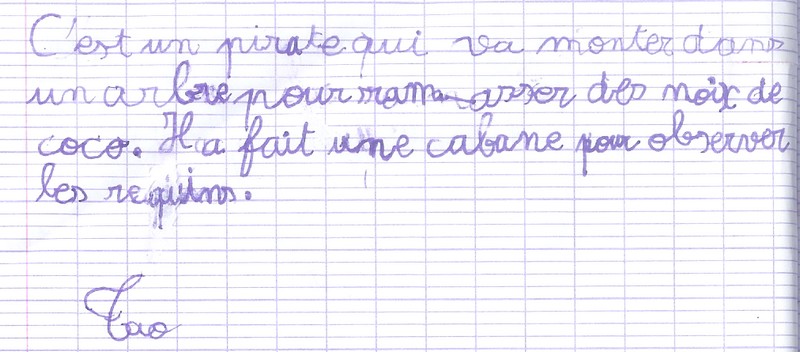 C'est un pirate qui va monter dans
un arbre pour ramasser des noix de
coco. Il a fait une cabane pour observer
les requins.
Tao